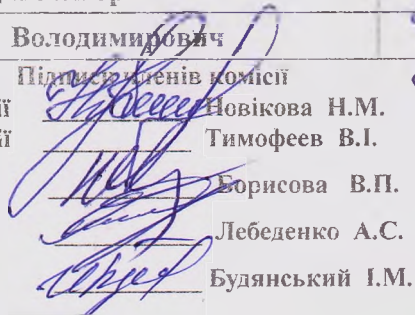 Володимирович
Підписи членів комісії
ії Новікова Н.М.
ії Тимофеев В.І.
Борисова В.П.
Лебеденко А.С.
Будянський І.М.